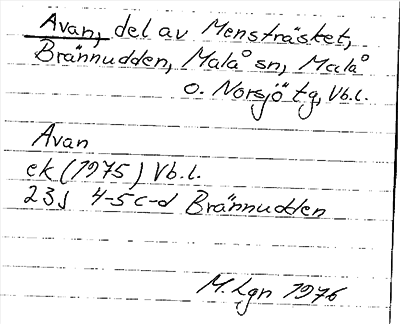 Avan, del av Mensträsket,
Brännudden, Malå sn, Malå
o. Norsjö tg, Vb.l.
Avan
ek (1975) Vb.l.
23J 4-5c-d Brännudden
M. Lgn 1976